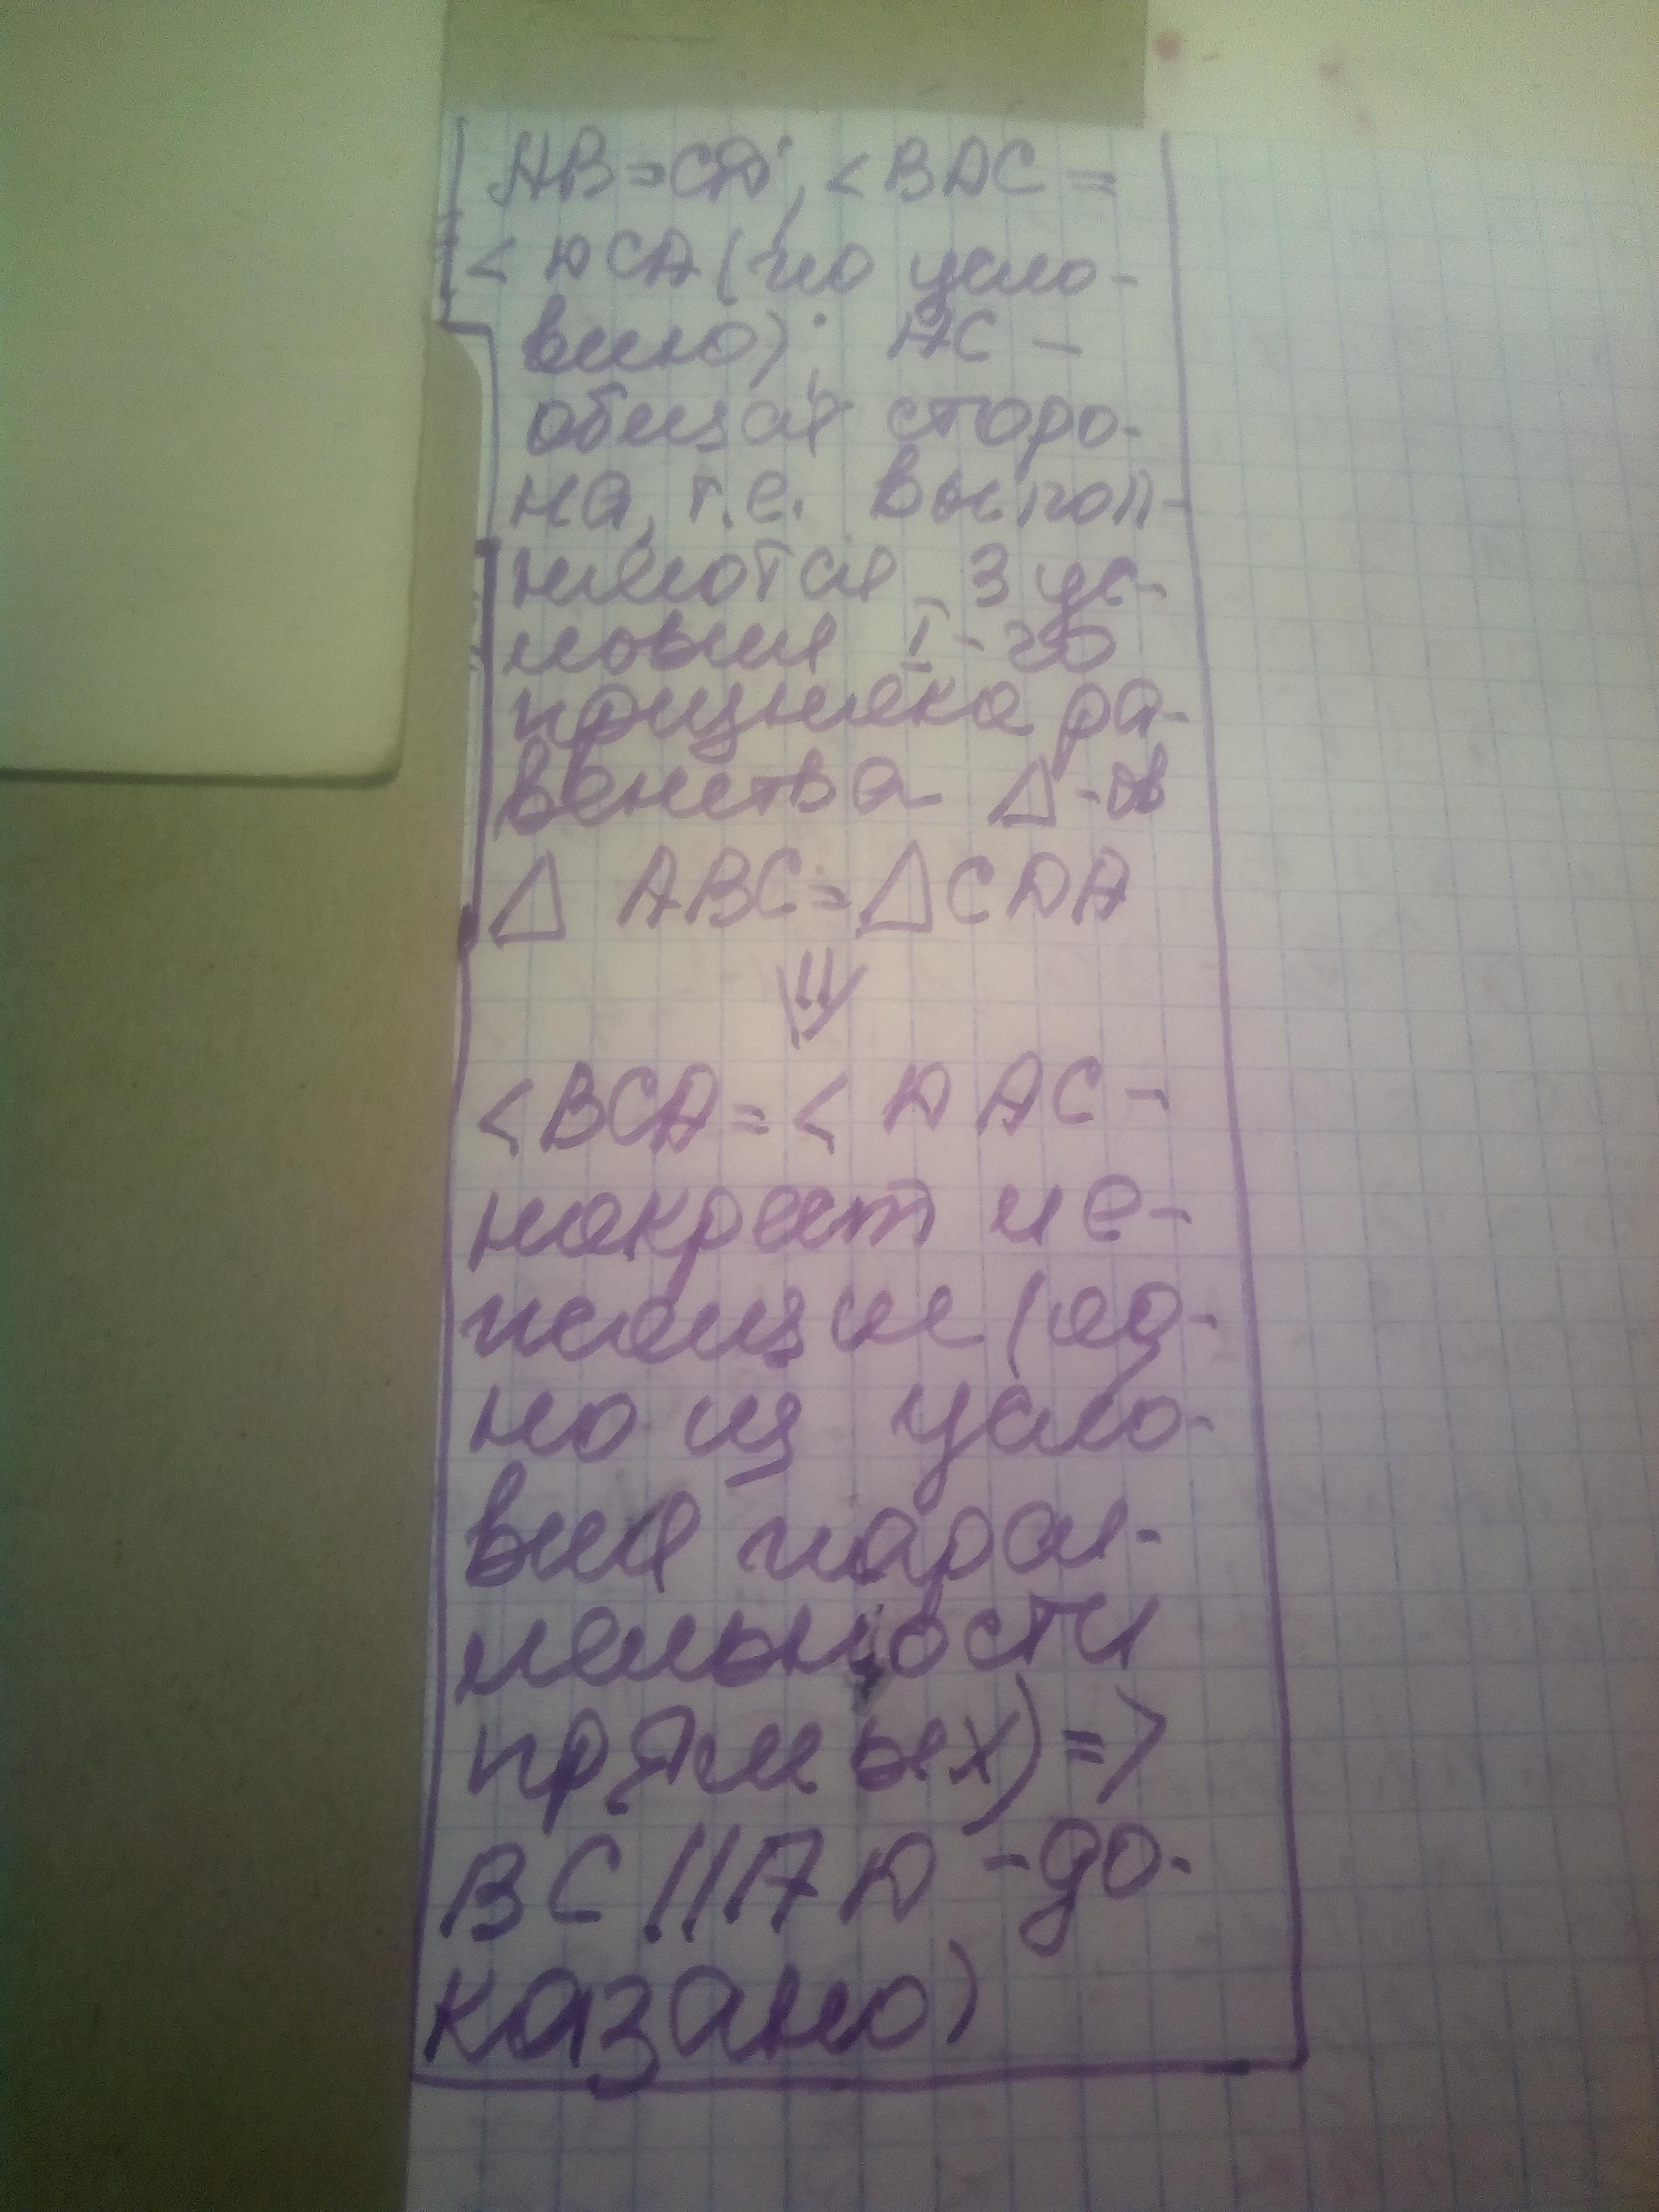 AB=CD, <BAC=
<DCA (по усло-
вию); AC -
общая сторо-
на, т.е. выпол-
няются 3 ус-
ловия I-го
признака ра-
венства Δ-ов
Δ ABC=ΔCDA
⇓
<BCA=< DAC -
накрест ле-
жащие (од-
но из усло-
вия парал-
лельности
прямых) =>
BC||AD - до-
казано)